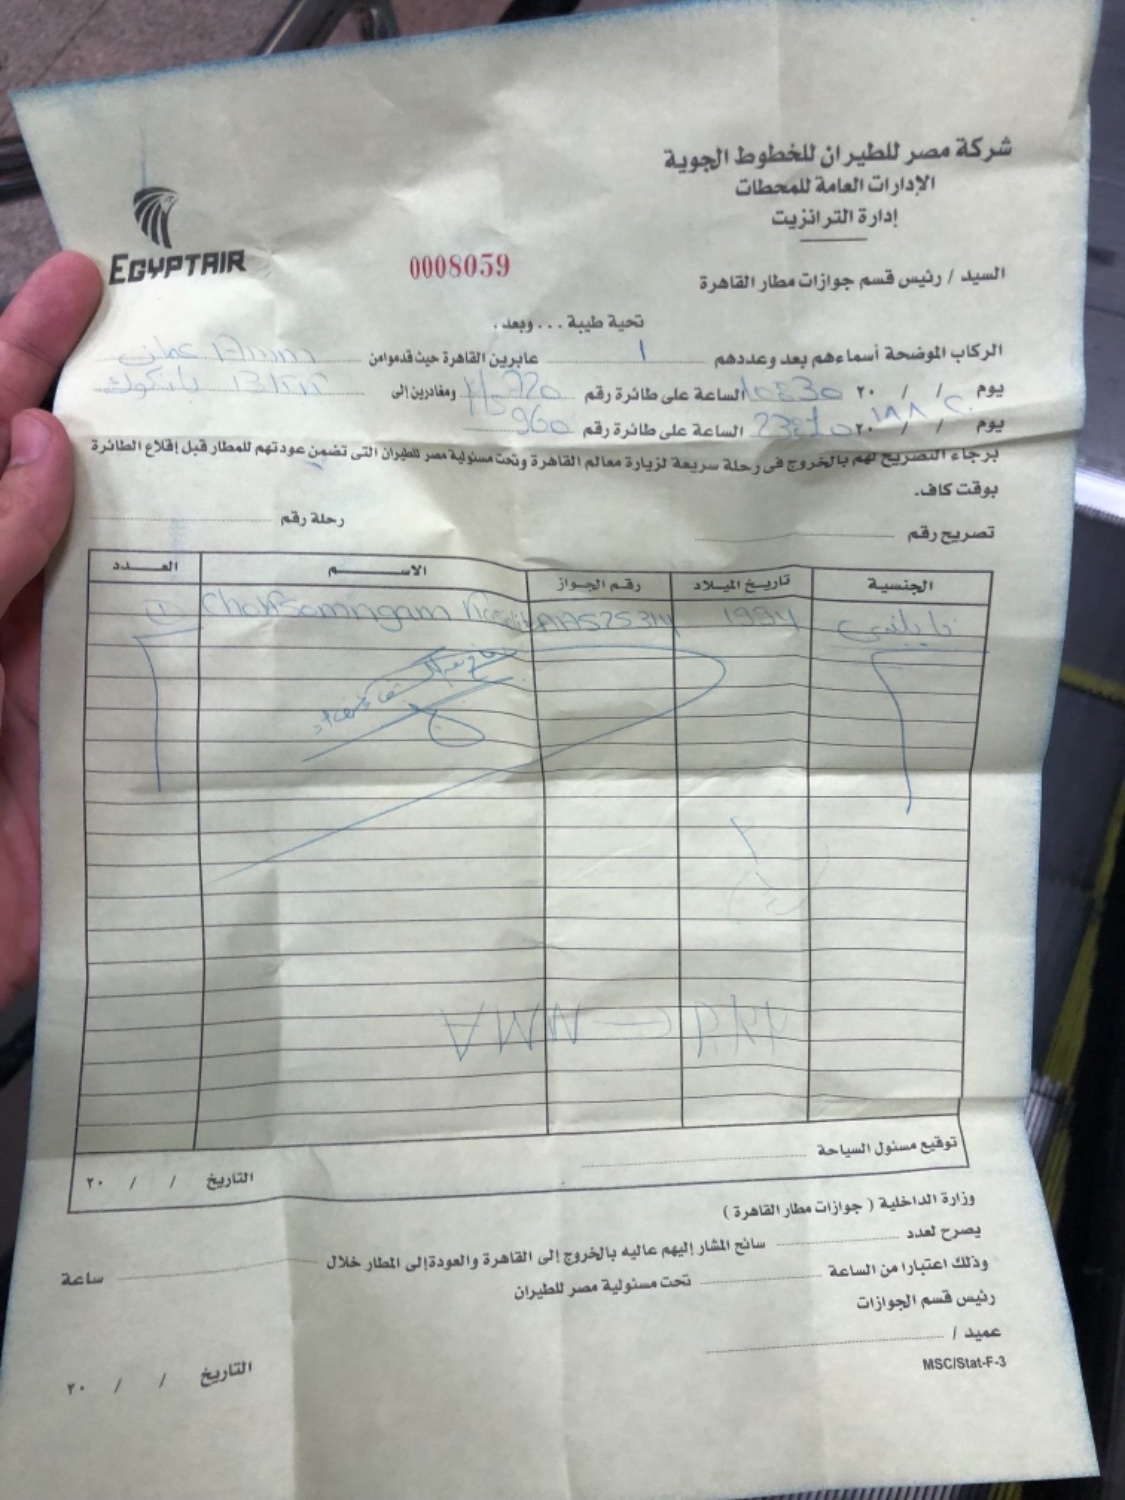 شركة مصر للطيران للخطوط الجوية
الإدارات العامة للمحطات
إدارة الترانزيت
EGYPTAIR
0008059
السيد / رئيس قسم جوازات مطار القاهرة
تحية طيبة ... وبعد ،
الركاب الموضحة أسماءهم بعد وعددهم 1 عابرين القاهرة حيث قدموا من Amm عمان
يوم / / ٢٠ الساعة 10:30 على طائرة رقم 720 ومغادرين إلى بانكوك
يوم / / ٢٠ الساعة على طائرة رقم 960
برجاء التصريح لهم بالخروج فى رحلة سريعة لزيارة معالم القاهرة وتحت مسئولية مصر للطيران التى تضمن عودتهم للمطار قبل إقلاع الطائرة
بوقت كاف.
تصريح رقم رحلة رقم
الجنسية تاريخ الميلاد رقم الجواز الاسم العدد
1994 1
توقيع مسئول السياحة
التاريخ / / ٢٠
وزارة الداخلية ( جوازات مطار القاهرة )
يصرح لعدد سائح المشار إليهم عاليه بالخروج إلى القاهرة والعودة إلى المطار خلال ساعة
وذلك اعتبارا من الساعة تحت مسئولية مصر للطيران
رئيس قسم الجوازات
عميد /
MSC/Stat-F-3
التاريخ / / ٢٠